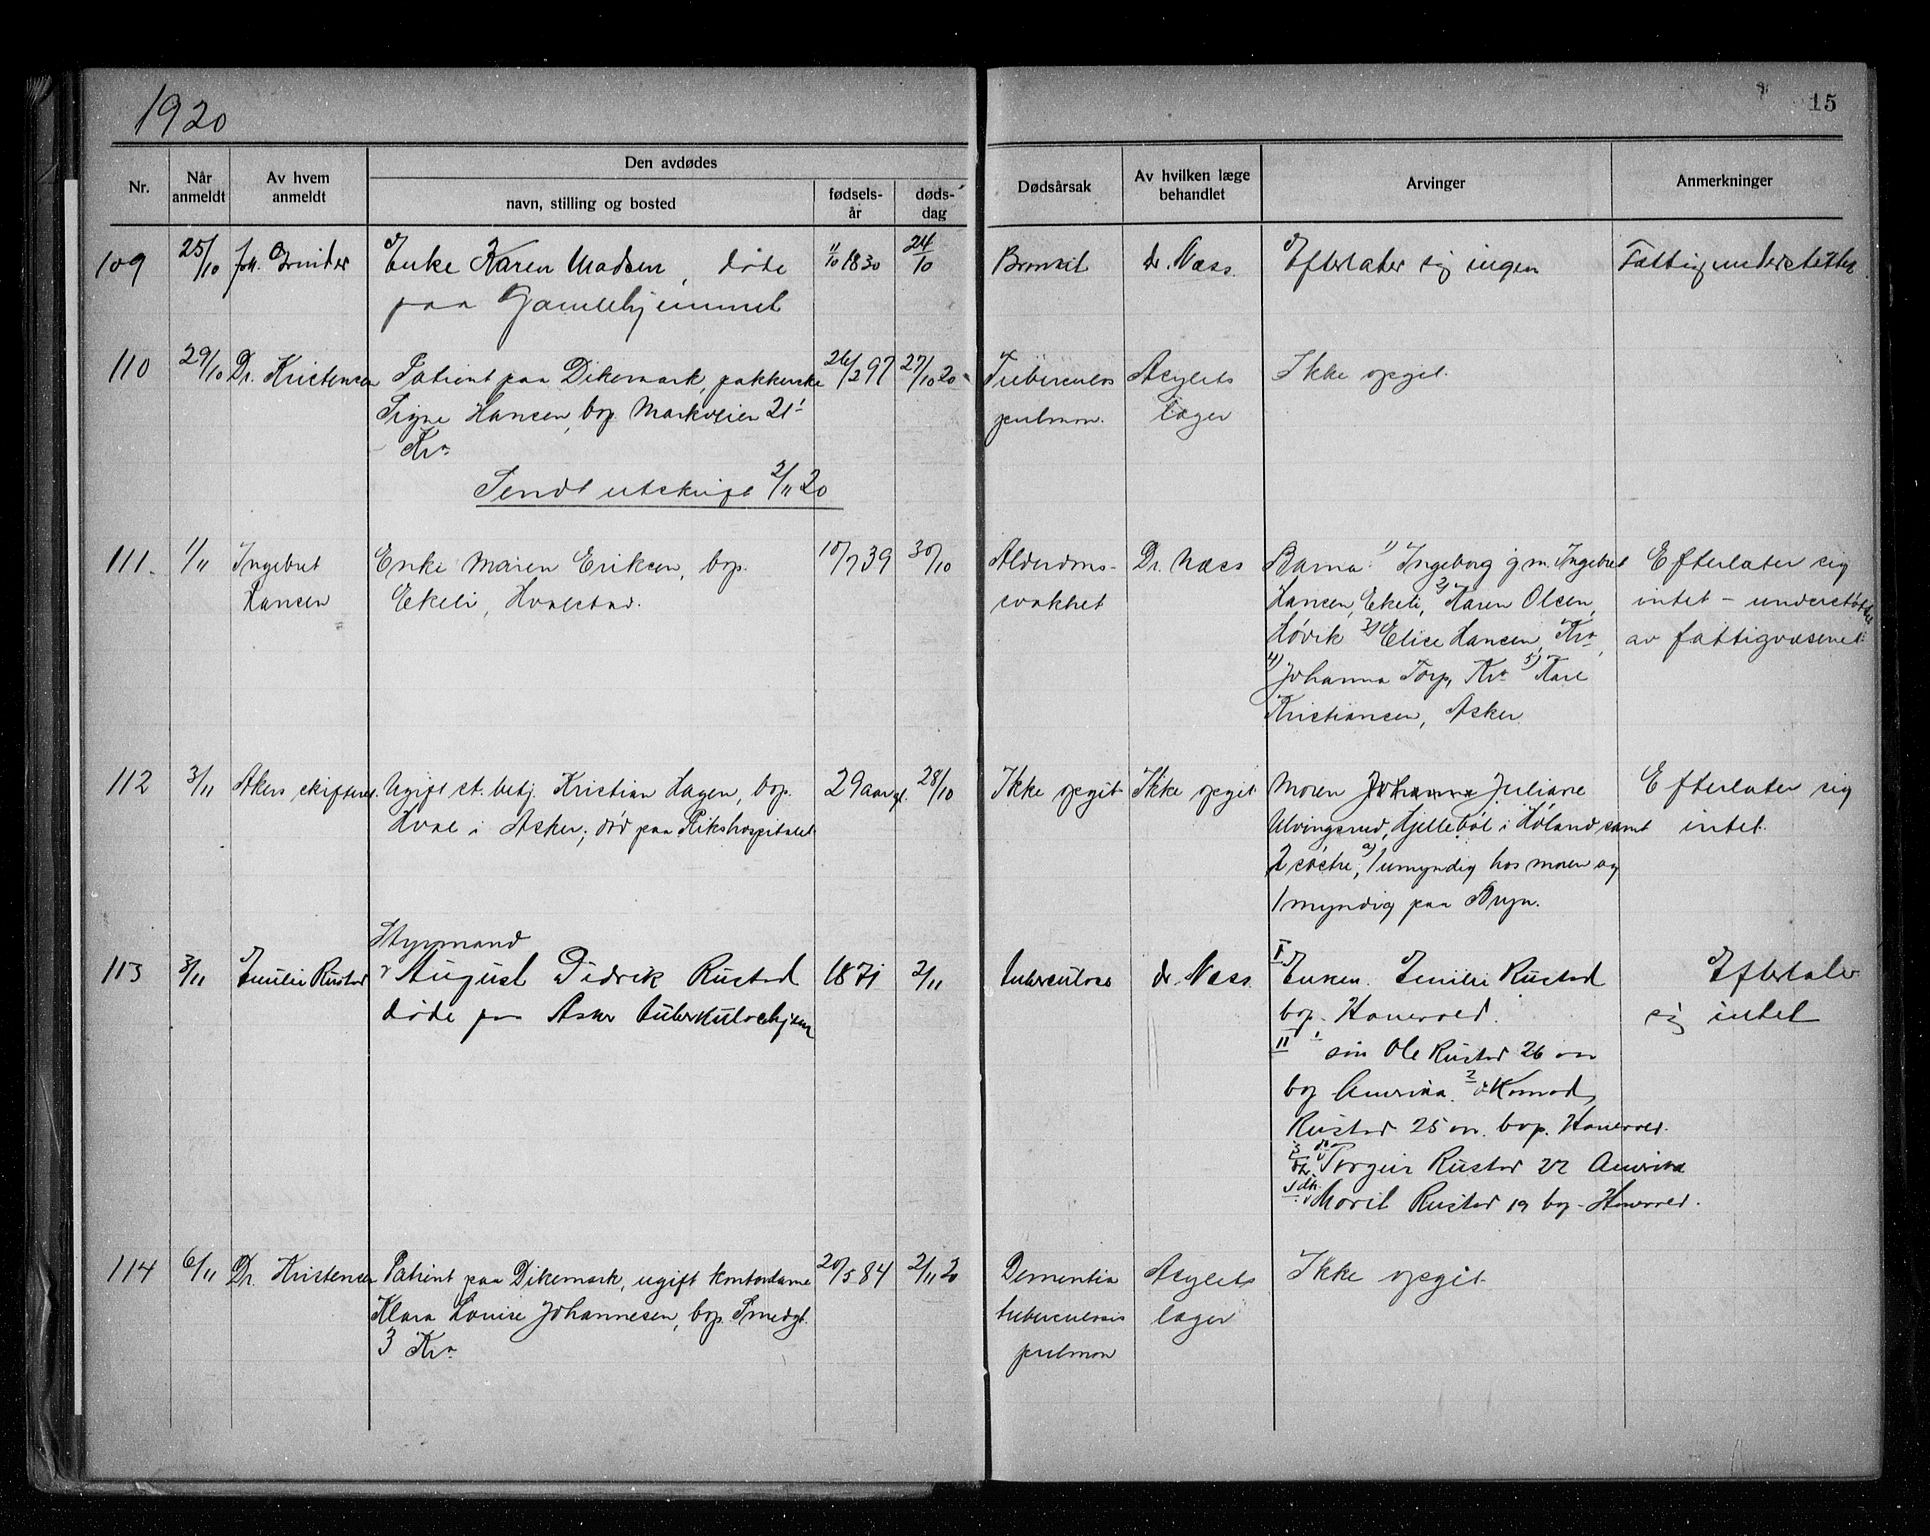 1920
15
Nr.
Når anmeldt
Av hvem anmeldt
Den avdødes
navn, stilling og bosted
fødsels-år
døds-dag
Dødsårsak
Av hvilken læge behandlet
Arvinger
Anmerkninger
109 25/10 Enke Karen Madsen, døde 11/10 1830 24/10 Bronkit dr. Næss. Efterlater sig ingen Fattigunderstøttet
paa Gamlehjemmet
110 29/10 Dr. Kristensen Patient paa Dikemark, pakkerske 26/2 97 27/10 20 Tuberculos Asylets Ikke opgit.
Signe Hansen, bop. Markveien 21 pulmon. læger
Kra
Sendt utskrift 2/11 20
111. 1/11 Ingebret Enke Maren Eriksen, bop. 10/7 39 30/10 Alderdoms- Dr. Næss Barna: 1) Ingeborg g.m. Ingebret Efterlater sig
Hansen Ekeli, Hvalstad. svakhet Hansen, Ekeli, 2) Karen Olsen, intet – understøttet
Høvik 3) Elise Hansen, Kra, av fattigvæsenet
4) Johanna Torp, Kra 5) Karl
Kristiansen, Asker.
112 3/11 Akers skifteret. Ugift st. betj. Kristian Hagen, bop. 29 aar gl. 28/10 Ikke opgit Ikke opgit Moren Johanna Juliane Efterlater sig
Hval i Asker; død paa Rikshospitalet Ulvingsrud, Hjellebøl i Høland samt intet.
2 søstre, 1 umyndig hos moren og
1 myndig paa Bryn.
Styrmand
113 3/11 Emilie Rustad August Didrik Rustad 1871 2/11 tuberculose dr. Næss. I Enken Emilie Rustad Efterlater
døde paa Asker tuberkulosehjem bop. Hanevold. sig intet
II 1 søn Ole Rustad 26 aar
bop Amerika. 2 Konrad
Rustad 25 aar. bop. Hanevold.
3 Torgeir Rustad 22 Amerika
dtr. Marit Rustad 19 bop. Hanevold.
114 6/11 Dr. Kristensen Patient paa Dikemark, ugift kontordame 20/5 84 2/11 20 Dementia Asylets Ikke opgit
Klara Louise Johannesen, bop. Smedgt. tuberculosis læger
3 Kra pulmon